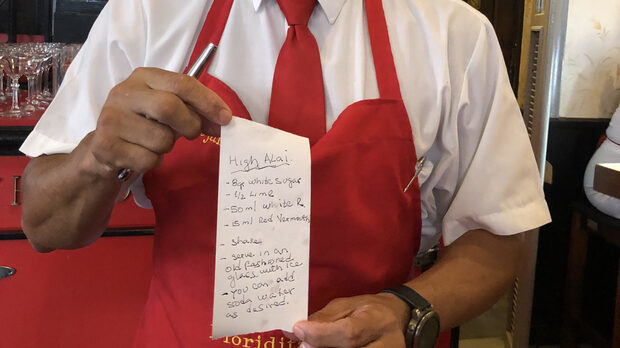 High ALai.
- 8gr white sugar
- 1/2 Lime
- 50ml white R.
- 15ml Red Vermouth
- Shake
- Serve in an
old fashioned
glass with ice
- You can add
soda water
as desired.
Floridit